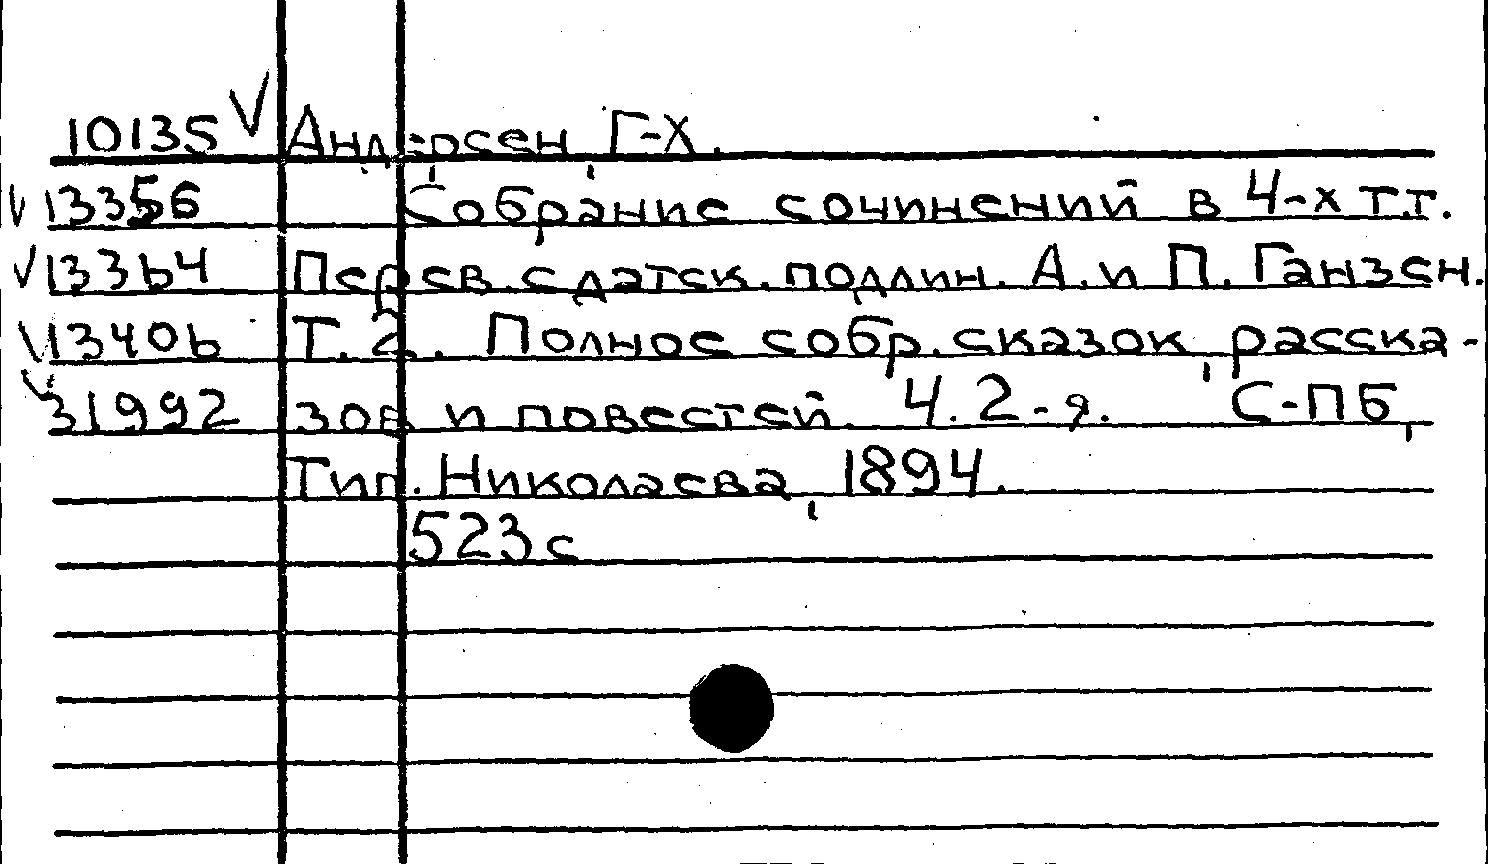 10135 V Андерсен, Г-Х.
V 13356 Собрание сочинений в 4-х т.т.
V 13364 Перев. с датск. подлин. А. и П. Ганзен.
V 13406 Т. 2. Полное собр. сказок, расска-
V 31992 зов и повестей. Ч. 2-я. С-ПБ,
Тип. Николаева, 1894.
523 с